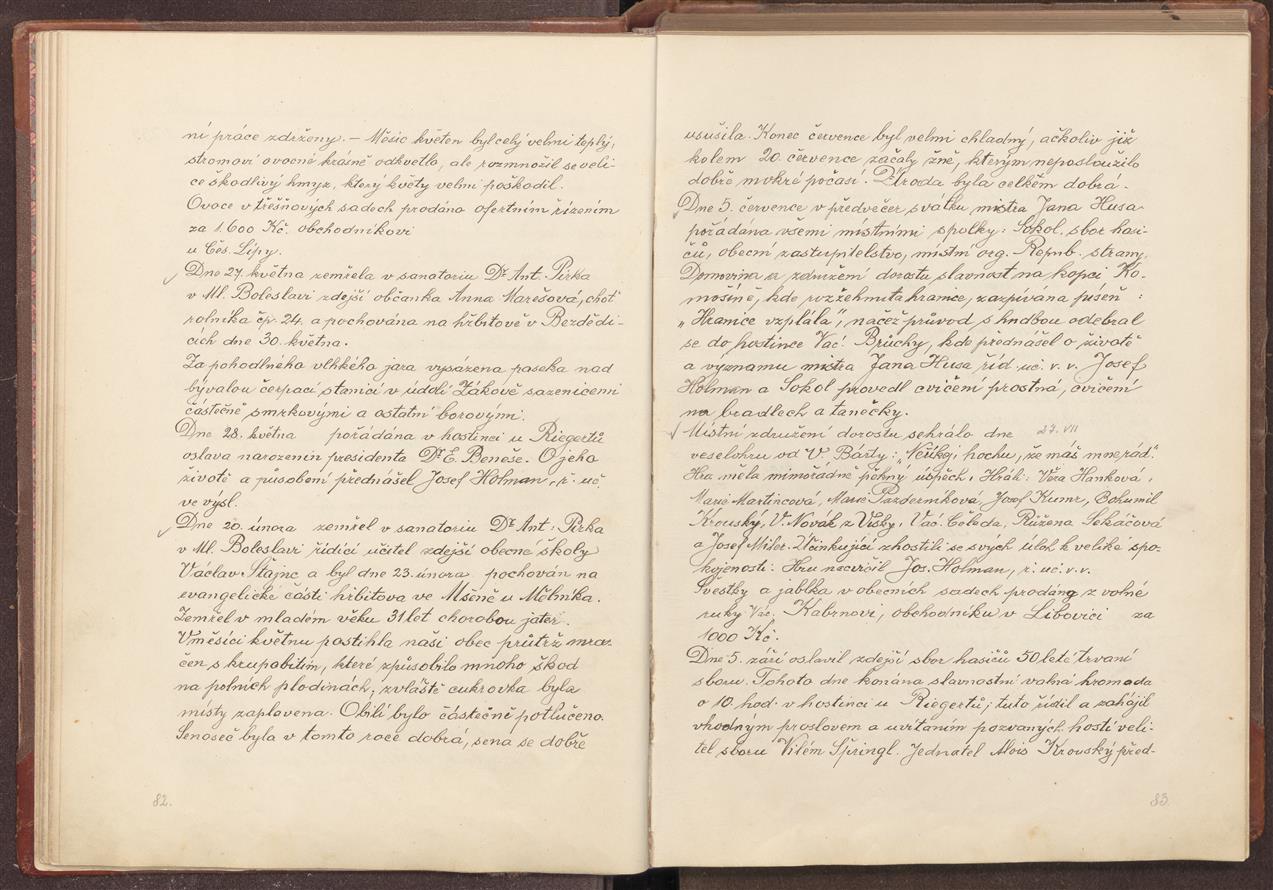 ní práce zdrženy. – Měsíc květen byl celý velmi teplý,
stromoví ovocné krásně odkvetlo, ale rozmnožil se veli-
ce škodlivý hmyz, který květy velmi poškodil.
Ovoce v třešňových sadech prodáno ofertním řízením
za 1.600 Kč. obchodníkovi
u Čes. Lípy.
Dne 27. května zemřela v sanatoriu Dr Ant. Pírka
v Ml. Boleslavi zdejší občanka Anna Marešová, choť
rolníka čp. 24. a pochována na hřbitově v Bezdědi-
cích dne 30. května.
Za pohodlného vlhkého jara vysázena paseka nad
bývalou čerpací stanicí v údolí Žákově sazenicemi
částečně smrkovými a ostatní borovými.
Dne 28. května pořádána v hostinci u Riegertů
oslava narozenin presidenta Dr E. Beneše. O jeho
životě a působení přednášel Josef Holman, ř. uč.
ve výsl.
Dne 20. února zemřel v sanatoriu Dr Ant. Pírka
v Ml. Boleslavi řídící učitel zdejší obecné školy
Václav Štajnc a byl dne 23. února pochován na
evangelické části hřbitova ve Mšeně u Mělníka.
Zemřel v mladém věku 31 let chorobou jater.
V měsíci květnu postihla naši obec průtrž mra-
čen s krupobitím, které způsobilo mnoho škod
na polních plodinách, zvláště cukrovka byla
místy zaplavena. Obilí bylo částečně potlučeno.
Senoseč byla v tomto roce dobrá, sena se dobře
82.
usušila. Konec července byl velmi chladný, ačkoliv již
kolem 20. července začaly žně, kterým neposloužilo
dobře mokré počasí. Úroda byla celkem dobrá.
Dne 5. července v předvečer svátku mistra Jana Husa
pořádána všemi místními spolky: Sokol, sbor hasi-
čů, obecní zastupitelstvo, místní org. Repub. strany,
Domovina a združení dorostu slavnost na kopci Ko-
mošíně, kde rozžehnuta hranice, zazpívána píseň:
„Hranice vzplála", načež průvod s hudbou odebral
se do hostince Vác. Brůchy, kde přednášel o životě
a významu mistra Jana Husa říd. uč. v. v. Josef
Holman a Sokol provedl cvičení prostná, cvičení
na bradlech a tanečky.
Místní združení dorostu sehrálo dne 27. VII
veselohru od V. Bárty: „Neříkej, hochu, že máš mne rád".
Hra měla mimořádně pěkný úspěch. Hráli: Věra Hanková,
Marie Martincová, Marie Pazderníková, Josef Kumr, Bohumil
Krouský, V. Novák z Vrsky, Vác. Čeleda, Růžena Sekáčová
a Josef Miler. Účinkující zhostili se svých úloh k veliké spo-
kojenosti. Hru nacvičil Jos. Holman, ř. uč. v. v.
Švestky a jablka v obecních sadech prodány z volné
ruky Vác. Kabrnovi, obchodníku v Libovici za
1000 Kč.
Dne 5. září oslavil zdejší sbor hasičů 50 leté trvání
sboru. Tohoto dne konána slavnostní valná hromada
o 10. hod. v hostinci u Riegertů; tuto řídil a zahájil
vhodným proslovem a uvítáním pozvaných hostí veli-
tel sboru Vilém Špringl. Jednatel Alois Krouský před-
83.